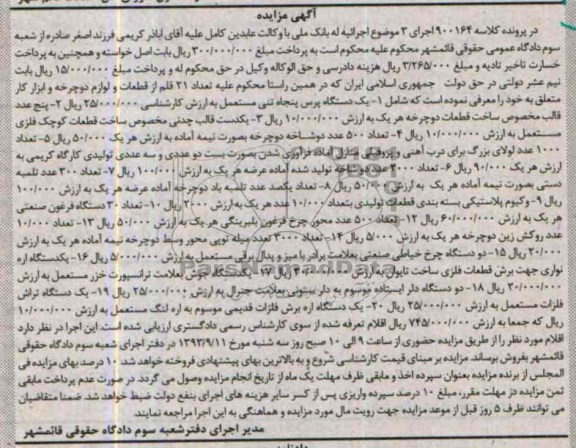 آگهی مزایده
در پرونده کلاسه ۹۰۰۱۶۴ اجرای ۳ موضوع اجرائیه له بانک ملی با وکالت عابدین کامل علیه آقای اباذر کریمی فرزند اصغر صادره از شعبه
سوم دادگاه عمومی حقوقی قائمشهر محکوم علیه محکوم است به پرداخت مبلغ ۳۰۰/۰۰۰/۰۰۰ ریال بابت اصل خواسته و همچنین به پرداخت
خسارت تاخیر تادیه و مبلغ ۳/۲۶۵/۰۰۰ ریال هزینه دادرسی و حق الوکاله وکیل در حق محکوم له و پرداخت مبلغ ۱۵/۰۰۰/۰۰۰ ریال بابت
نیم عشر دولتی در حق دولت جمهوری اسلامی ایران که در همین راستا محکوم علیه تعداد ۲۱ قلم از قطعات و لوازم دوچرخه و ابزار کار
متعلق به خود را معرفی نموده است که شامل ۱- یک دستگاه پرس پنجاه تنی مستعمل به ارزش کارشناسی ۲۵/۰۰۰/۰۰۰ ریال ۲- پنج عدد
قالب مخصوص ساخت قطعات دوچرخه هر یک به ارزش ۱۰/۰۰۰/۰۰۰ ریال ۳- یکدست قالب چدنی مخصوص ساخت قطعات کوچک فلزی
مستعمل به ارزش ۱۰/۰۰۰/۰۰۰ ریال ۴- تعداد ۵۰۰ عدد دوشاخه دوچرخه بصورت نیمه آماده به ارزش هر یک ۵۰/۰۰۰ ریال ۵- تعداد
۱۰۰۰ عدد لولای بزرگ برای درب آهنی و پروفیلی منازل آماده فرآوری شدن بصورت بست دو عددی و سه عددی تولیدی کارگاه کریمی به
ارزش هر یک ۹۰/۰۰۰ ریال ۶- تعداد ۲۰۰۰ عدد دوشاخه تولید شده آماده عرضه هر یک به ارزش ۱۰۰/۰۰۰ ریال ۷- تعداد ۳۰۰ عدد تلمبه
دستی بصورت نیمه آماده هر یک به ارزش ۵۰/۰۰۰ ریال ۸- تعداد یکصد عدد تلمبه باد دوچرخه آماده عرضه هر یک به ارزش ۱۰۰/۰۰۰
ریال ۹- وکیوم پلاستیکی بسته بندی قطعات تولیدی بتعداد ۱۰/۰۰۰ عدد هر یک به ارزش ۲۰۰۰ ریال ۱۰- تعداد ۳۰ دستگاه فرغون صنعتی
هر یک به ارزش ۶۰۰/۰۰۰ ریال ۱۲- تعداد ۵۰۰ عدد محور چرخ فرغون بلبرینگی هر یک به ارزش ۵۰/۰۰۰ ریال ۱۳- تعداد ۱۰/۰۰۰
عدد روکش زین دوچرخه هر یک به ارزش ۵/۰۰۰ ریال ۱۴- تعداد ۳۰۰۰ عدد میله توپی محور وسط دوچرخه نیمه آماده هر یک به ارزش
۲۰/۰۰۰ ریال ۱۵- دو دستگاه چرخ خیاطی صنعتی بعلامت برادر با میز و پدال برقی مستعمل به ارزش ۵/۰۰۰/۰۰۰ ریال ۱۶- یکدستگاه اره
نواری جهت برش قطعات فلزی ساخت تایوان به ارزش ریال ۱۷- یکدستگاه جوش بعلامت ترانسپورت خزر مستعمل به ارزش
۲۰/۰۰۰/۰۰۰ ریال ۱۸- دو دستگاه دلر ایستاده موسوم به دلر ستونی بعلامت جنرال به ارزش ۲۵/۰۰۰/۰۰۰ ریال ۱۹- یک دستگاه تراش
فلزات مستعمل به ارزش ۲۵/۰۰۰/۰۰۰ ریال ۲۰- یک دستگاه اره برش فلزات قدیمی موسوم به اره لنگ مستعمل به ارزش ۱۰/۰۰۰/۰۰۰
ریال که جمعا به ارزش ۷۴۵/۰۰۰/۰۰۰ ریال اقلام تعرفه شده از سوی کارشناس رسمی دادگستری ارزیابی شده است. این اجرا در نظر دارد
اقلام مورد نظر را از طریق مزایده حضوری از ساعت ۹ الی ۱۰ صبح روز سه شنبه مورخ ۱۳۹۳/۹/۱۱ در دفتر اجرای شعبه سوم دادگاه حقوقی
قائمشهر بفروش برساند. مزایده بر مبنای قیمت کارشناسی شروع و به بالاترین بهای پیشنهادی فروخته خواهد شد. ۱۰ درصد بهای مزایده فی
المجلس از برنده مزایده بعنوان سپرده اخذ و مابقی ظرف مهلت یک ماه از تاریخ انجام مزایده وصول می گردد. در صورت عدم پرداخت مابقی
ثمن مزایده در مهلت مقرر، مبلغ ۱۰ درصد سپرده واریزی پس از کسر سایر هزینه های اجرای بنفع دولت ضبط خواهد شد. ضمنا متقاضیان
می توانند ظرف ۵ روز قبل از موعد مزایده جهت رویت مال مورد مزایده و هماهنگی به این اجرا مراجعه نمایند.
مدیر اجرای دفتر شعبه سوم دادگاه حقوقی قائمشهر